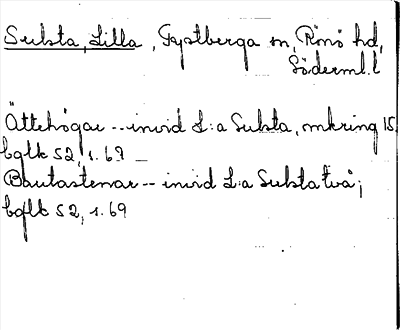 Substa, Lilla, Tystberga sn, Rönö hd,
Söderml. l
Ättehögar -- invid L:a Substa, omkring 15.
bglb 52, s. 69 —
Bautastenar -- invid L:a Substa två;
bglb 52, s. 69